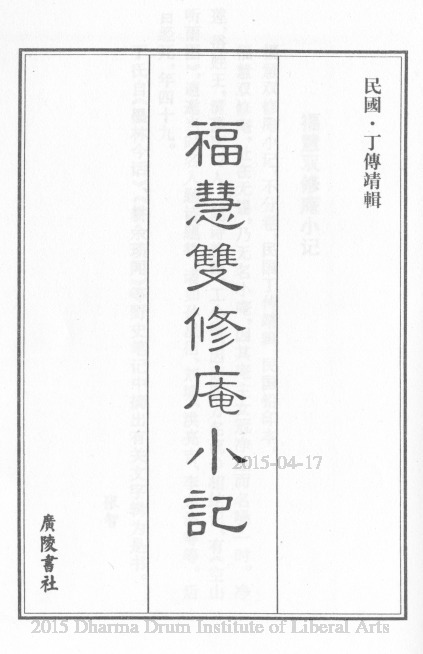 民國·丁傳靖輯
福慧雙修庵小記
廣陵書社
2015-04-17
2015 Dharma Drum Institute of Liberal Arts